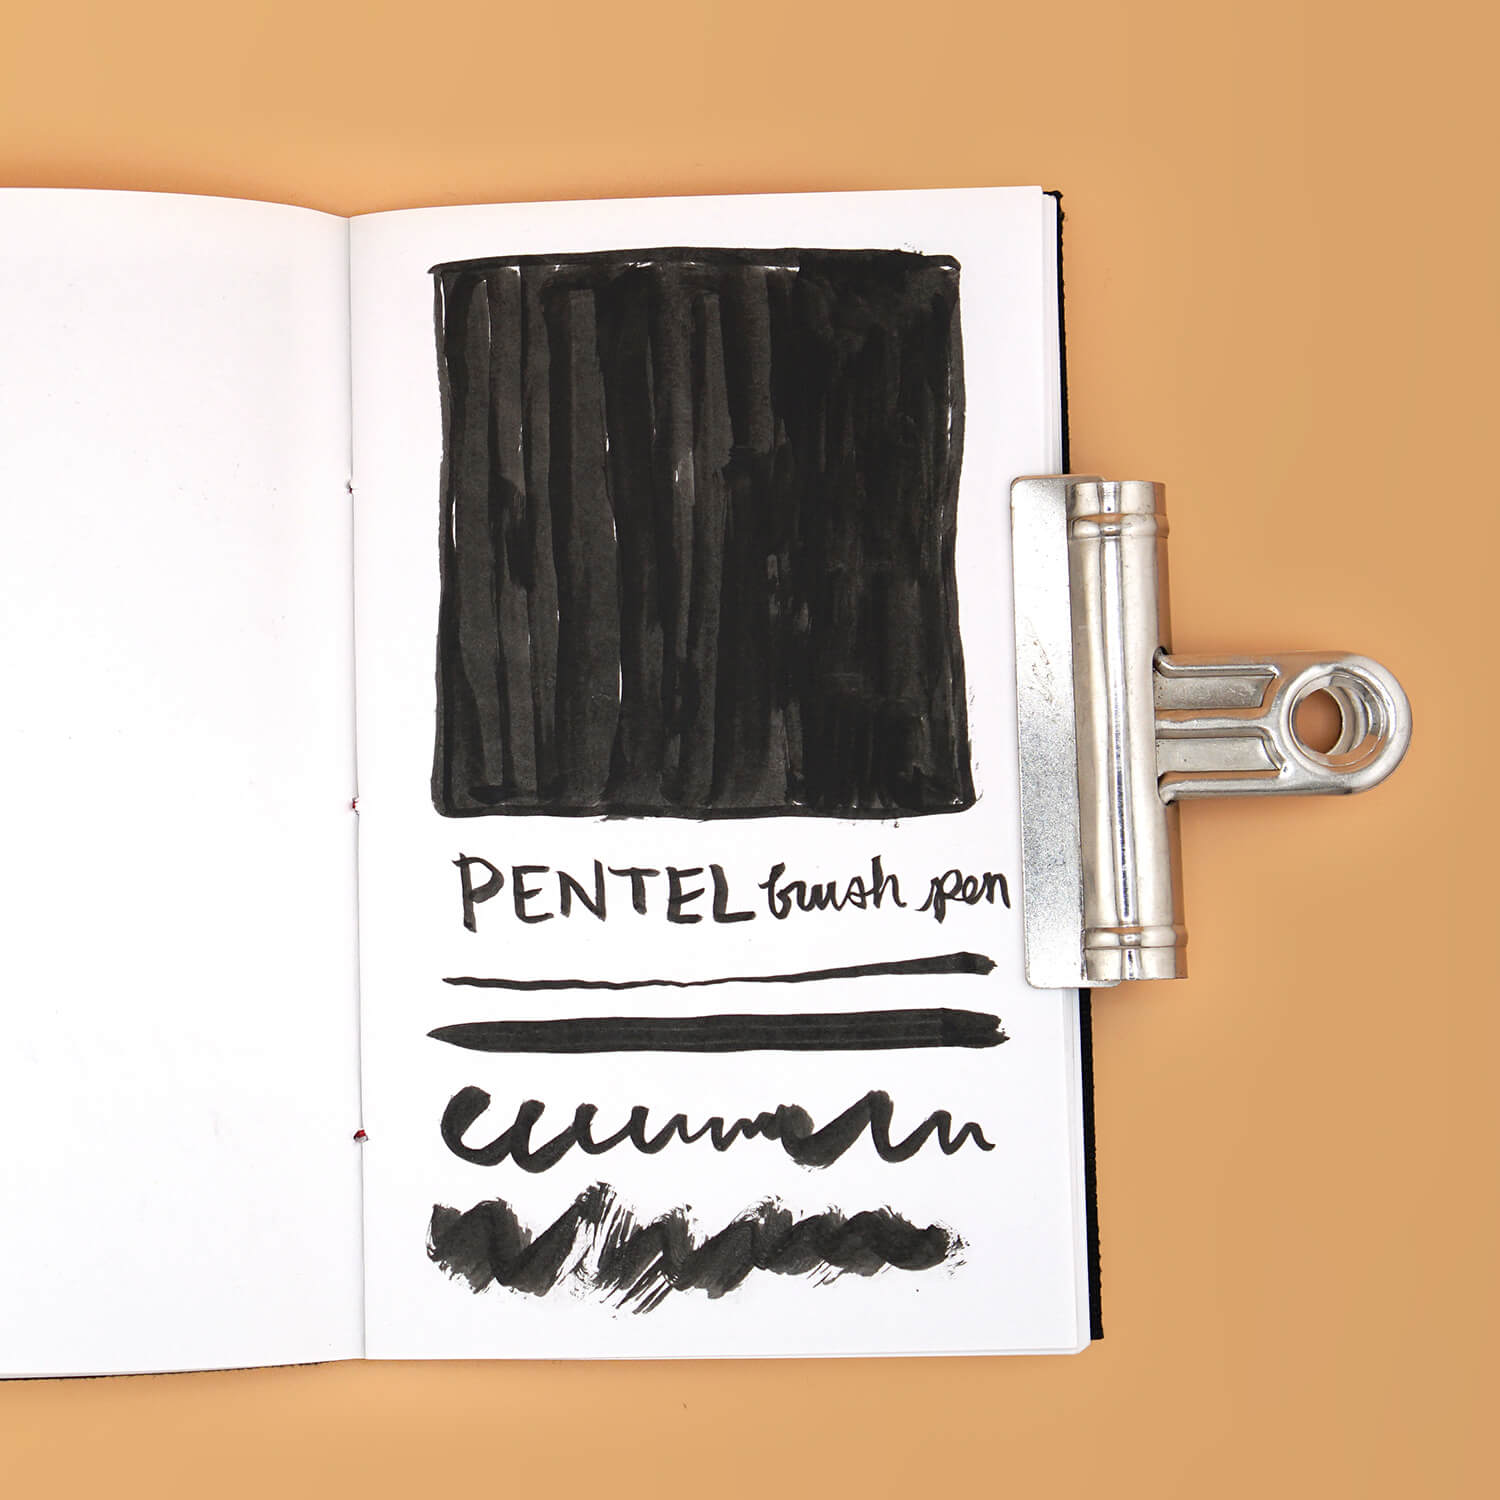 PENTEL brush pen